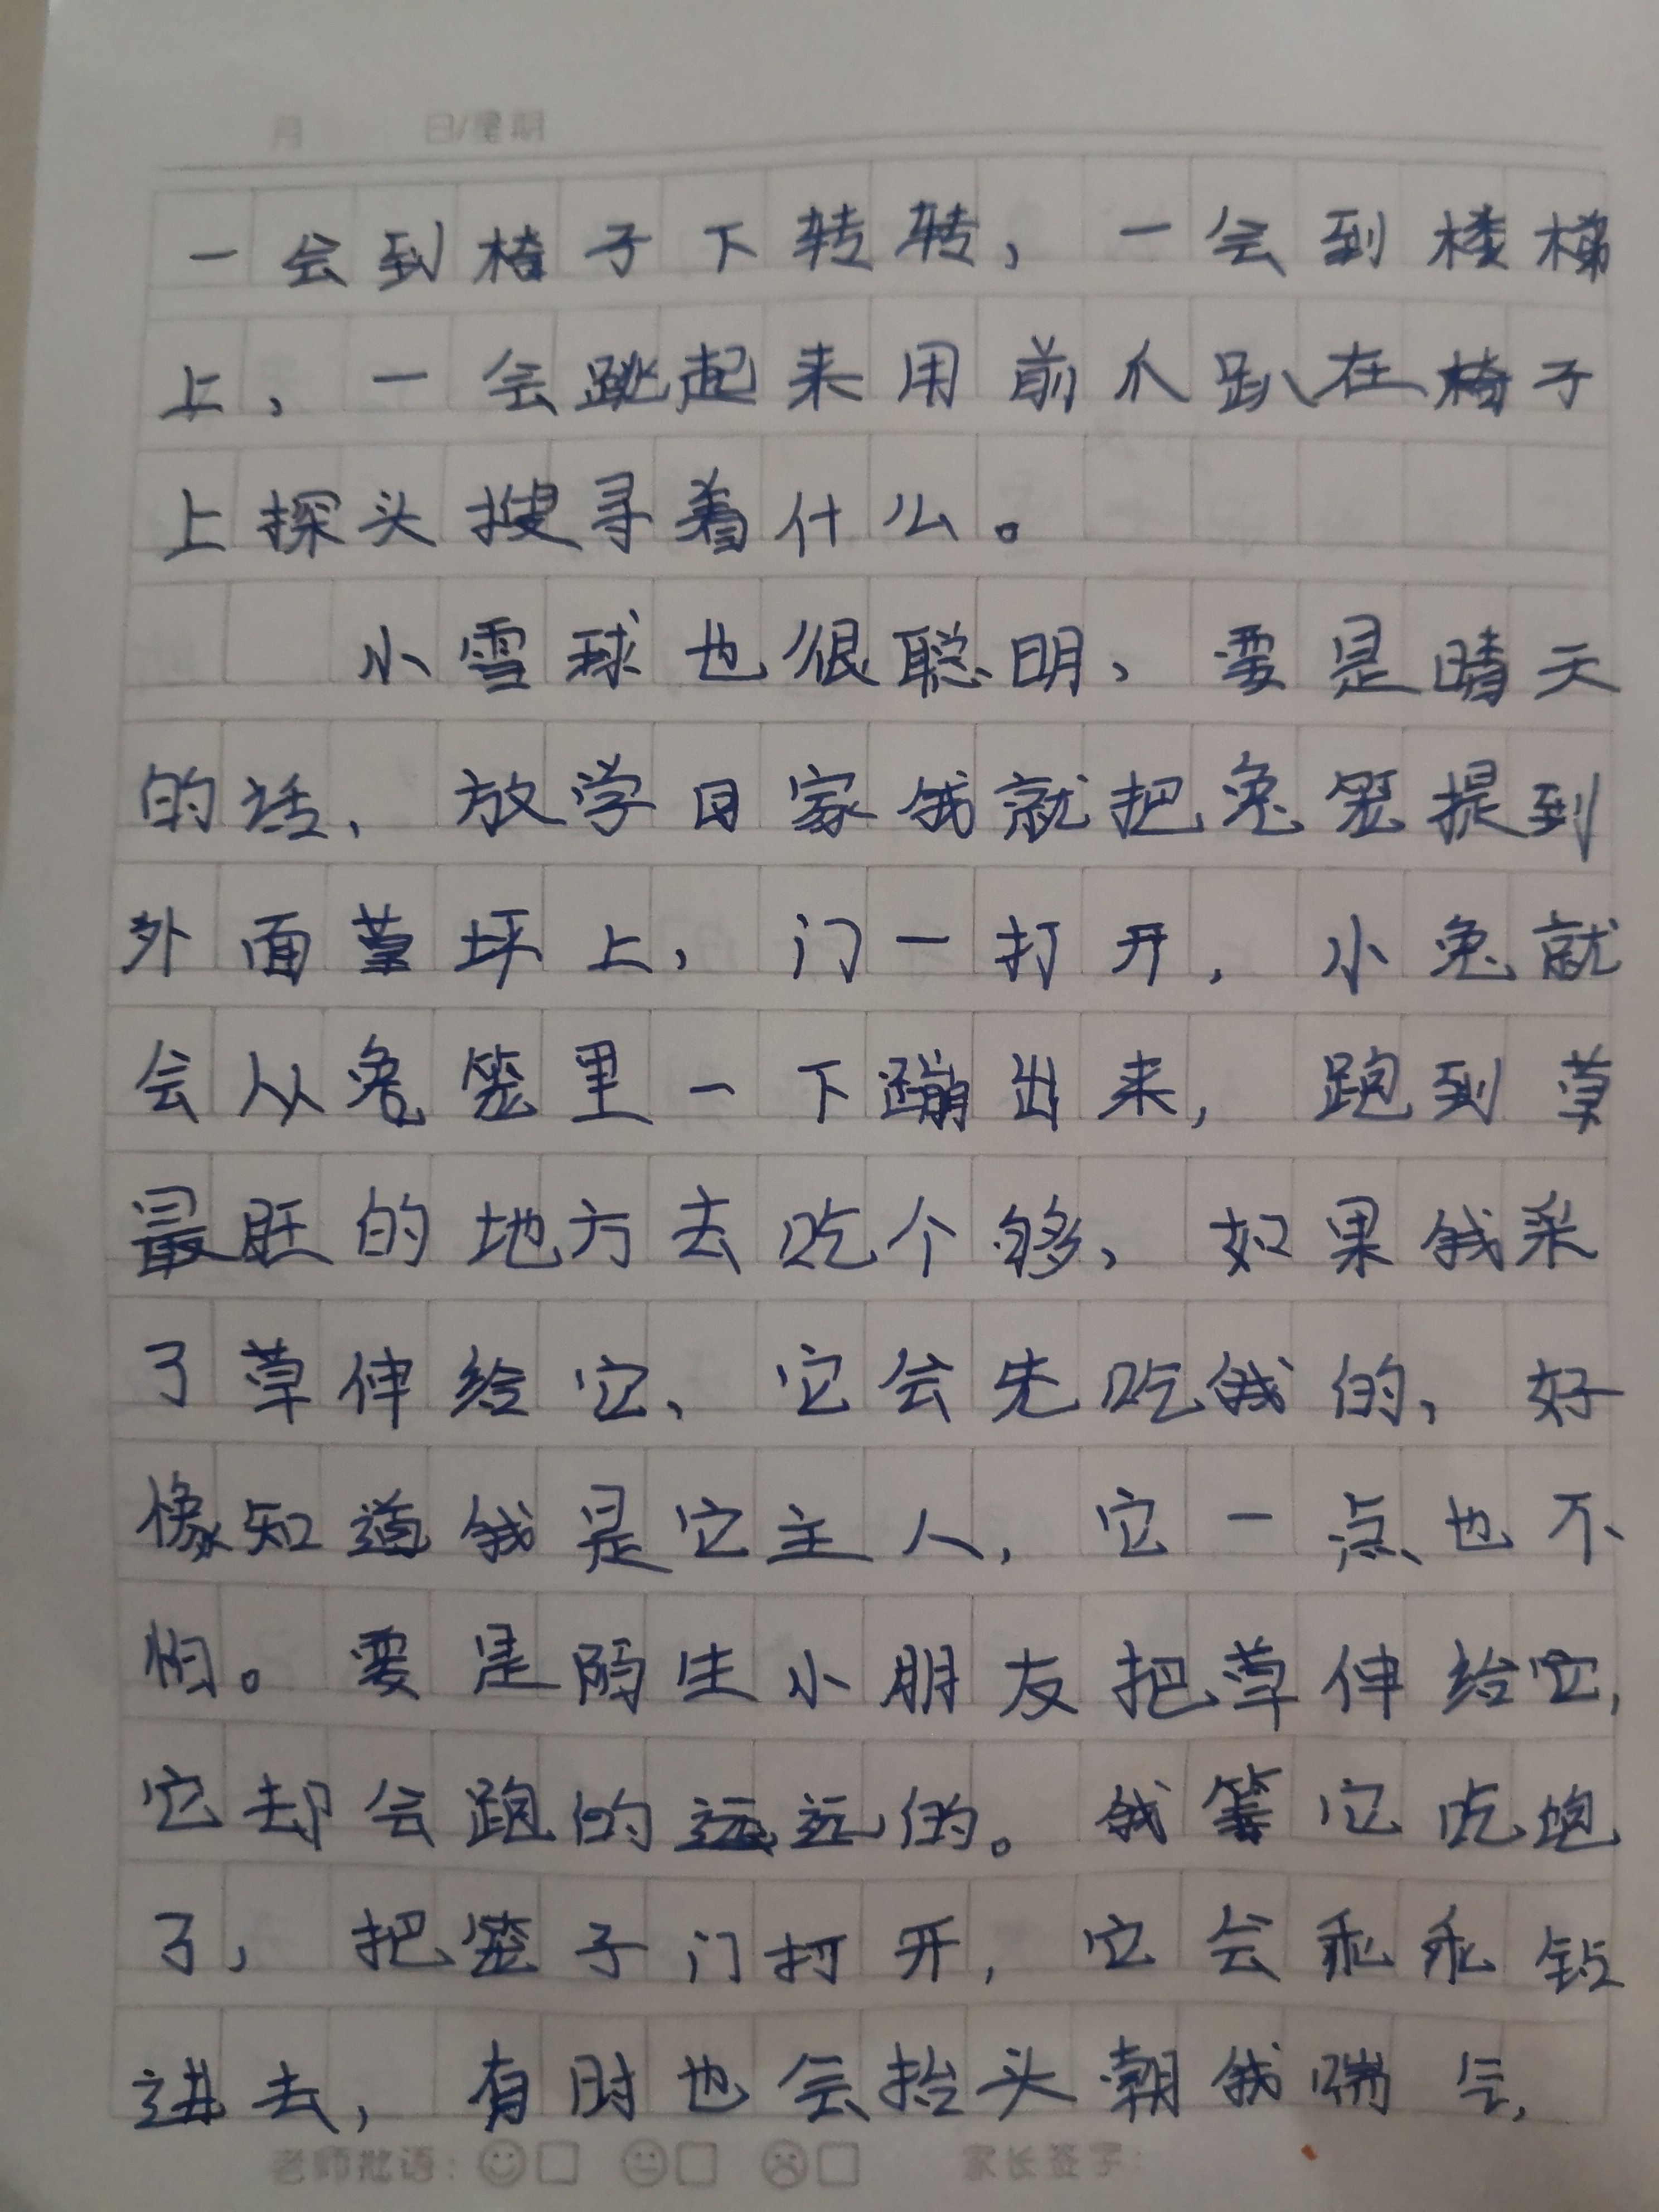 月 日/星期
一会到椅子下转转，一会到楼梯
上，一会跳起来用前爪趴在椅子
上探头搜寻着什么。
小雪球也很聪明，要是晴天
的话，放学回家我就把兔笼提到
外面草坪上，门一打开，小兔就
会从兔笼里一下蹦出来，跑到草
最旺的地方去吃个够，如果我采
了草伸给它，它会先吃我的，好
像知道我是它主人，它一点也不
怕。要是陌生小朋友把草伸给它，
它却会跑的远远的。我等它吃饱
了，把笼子门打开，它会乖乖钻
进去，有时也会抬头朝我喘气，
老师批语：家长签字：